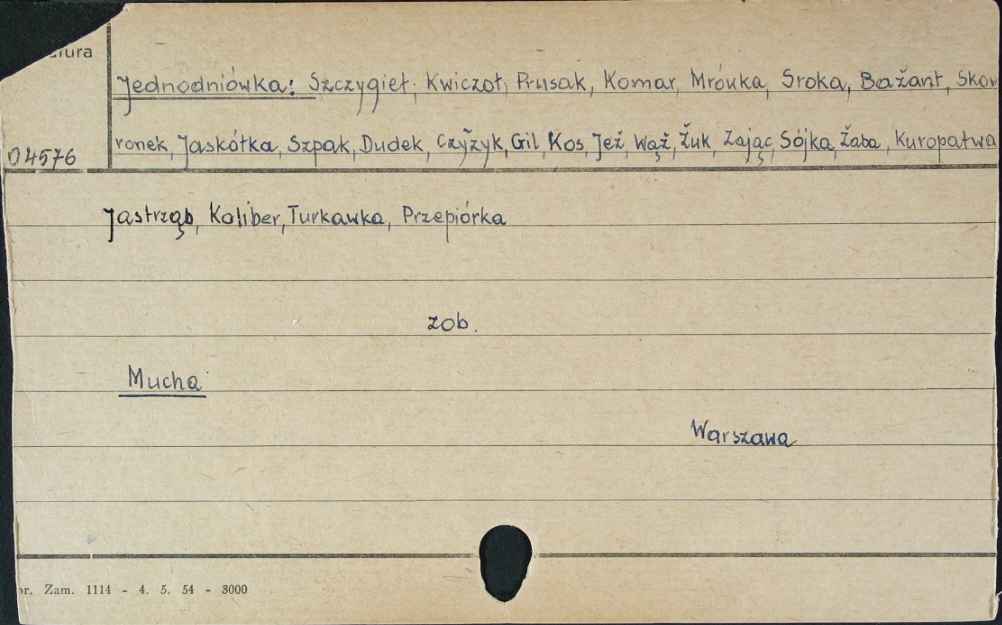 Jednodniówka: Szczygieł, Kwiczoł, Prusak, Komar, Mrówka, Sroka, Bażant, Skow
ronek, Jaskółka, Szpak, Dudek, Czyżyk, Gil, Kos, Jeż, Wąż, Żuk, Zając, Sójka, Żaba, Kuropatwa
04576
Jastrząb, Koliber, Turkawka, Przepiórka
zob.
Mucha
Warszawa
Zam. 1114 - 4. 5. 54 - 3000